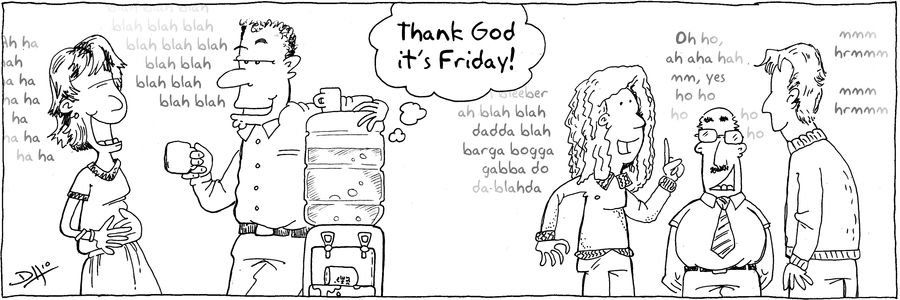 Ah ha
hah
ha ha
ha ha
ha
ha ha
ha ha
blah blah blah
blah blah blah
blah blah blah
blah blah
blah blah
blah blah
Thank God
it's Friday!
bleeber
ah blah blah
dadda blah
barga bogga
gabba do
da-blahda
Oh ho,
ah aha hah
mm, yes
ho ho
ho
ho
ho
mmm
hrmmm
mmm
hrmmm